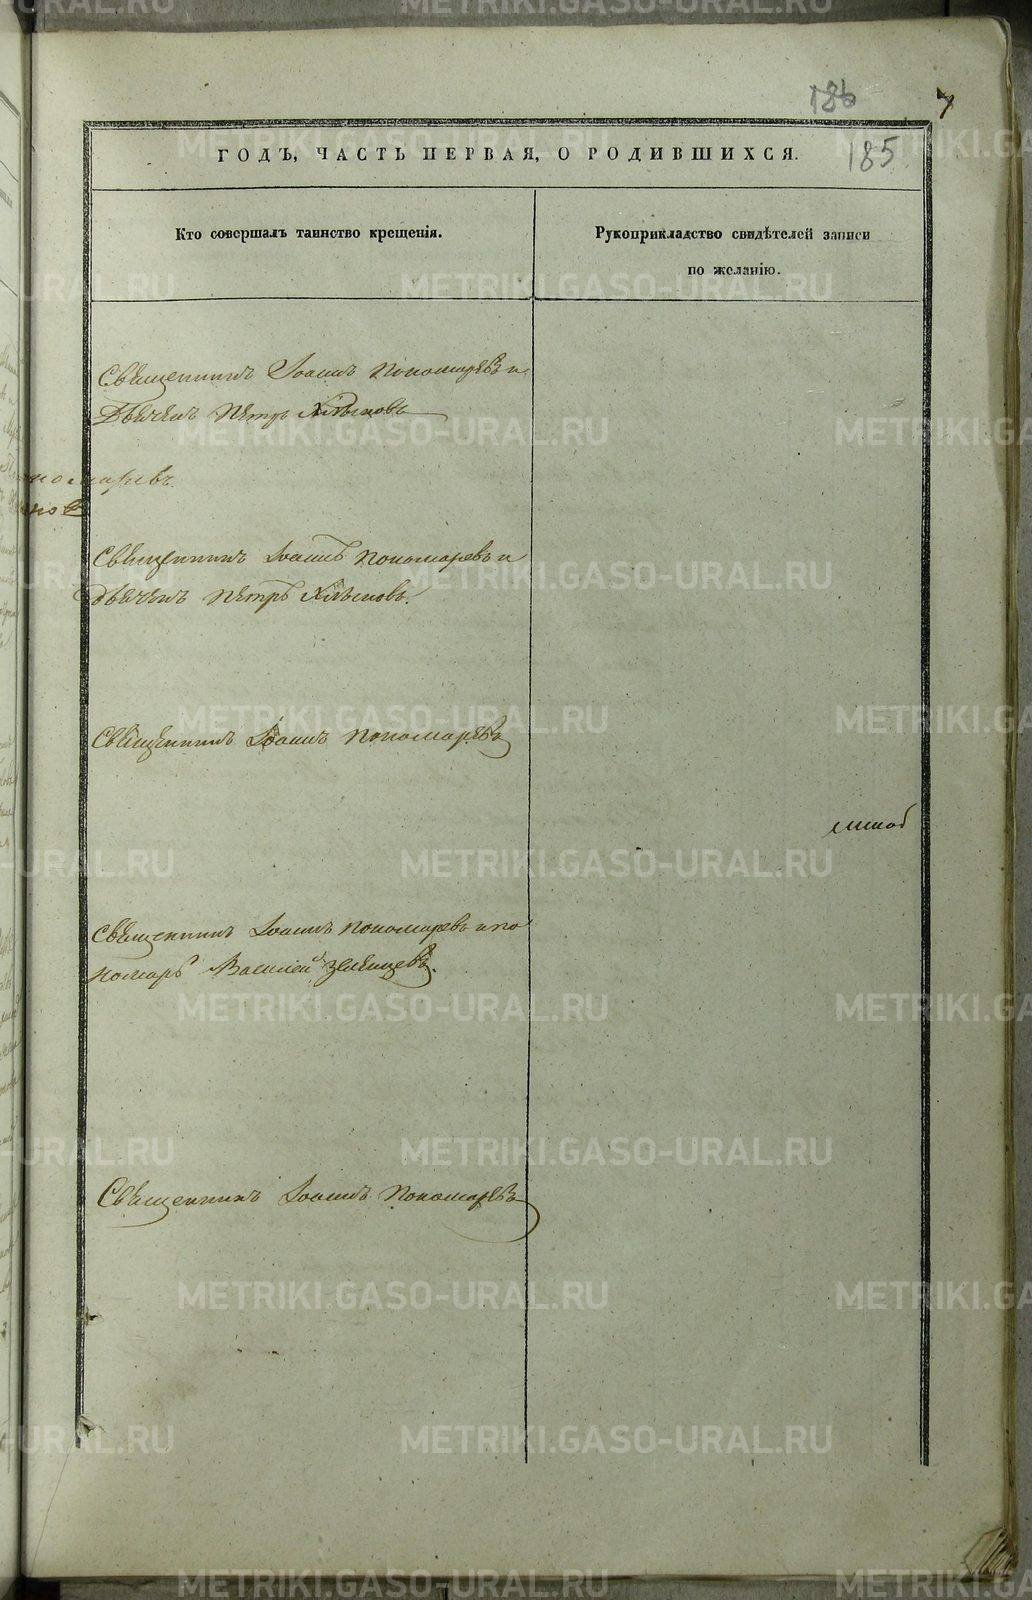 186
7
ГОДЪ, ЧАСТЬ ПЕРВАЯ, О РОДИВШИХСЯ.
185
Кто совершалъ таинство крещенія.
Рукоприкладство свидѣтелей записи
по желанію.
Священникъ Іоаннъ Пономаревъ и
Дьячекъ Петръ Хлыновъ
номаревъ
новъ
Священникъ Іоаннъ Пономаревъ и
Дьячекъ Петръ Хлыновъ.
Священникъ Іоаннъ Пономаревъ
Священникъ Іоаннъ Пономаревъ и по
номарь Василій
Священникъ Іоаннъ Пономаревъ
METRIKI.GASO-URAL.RU